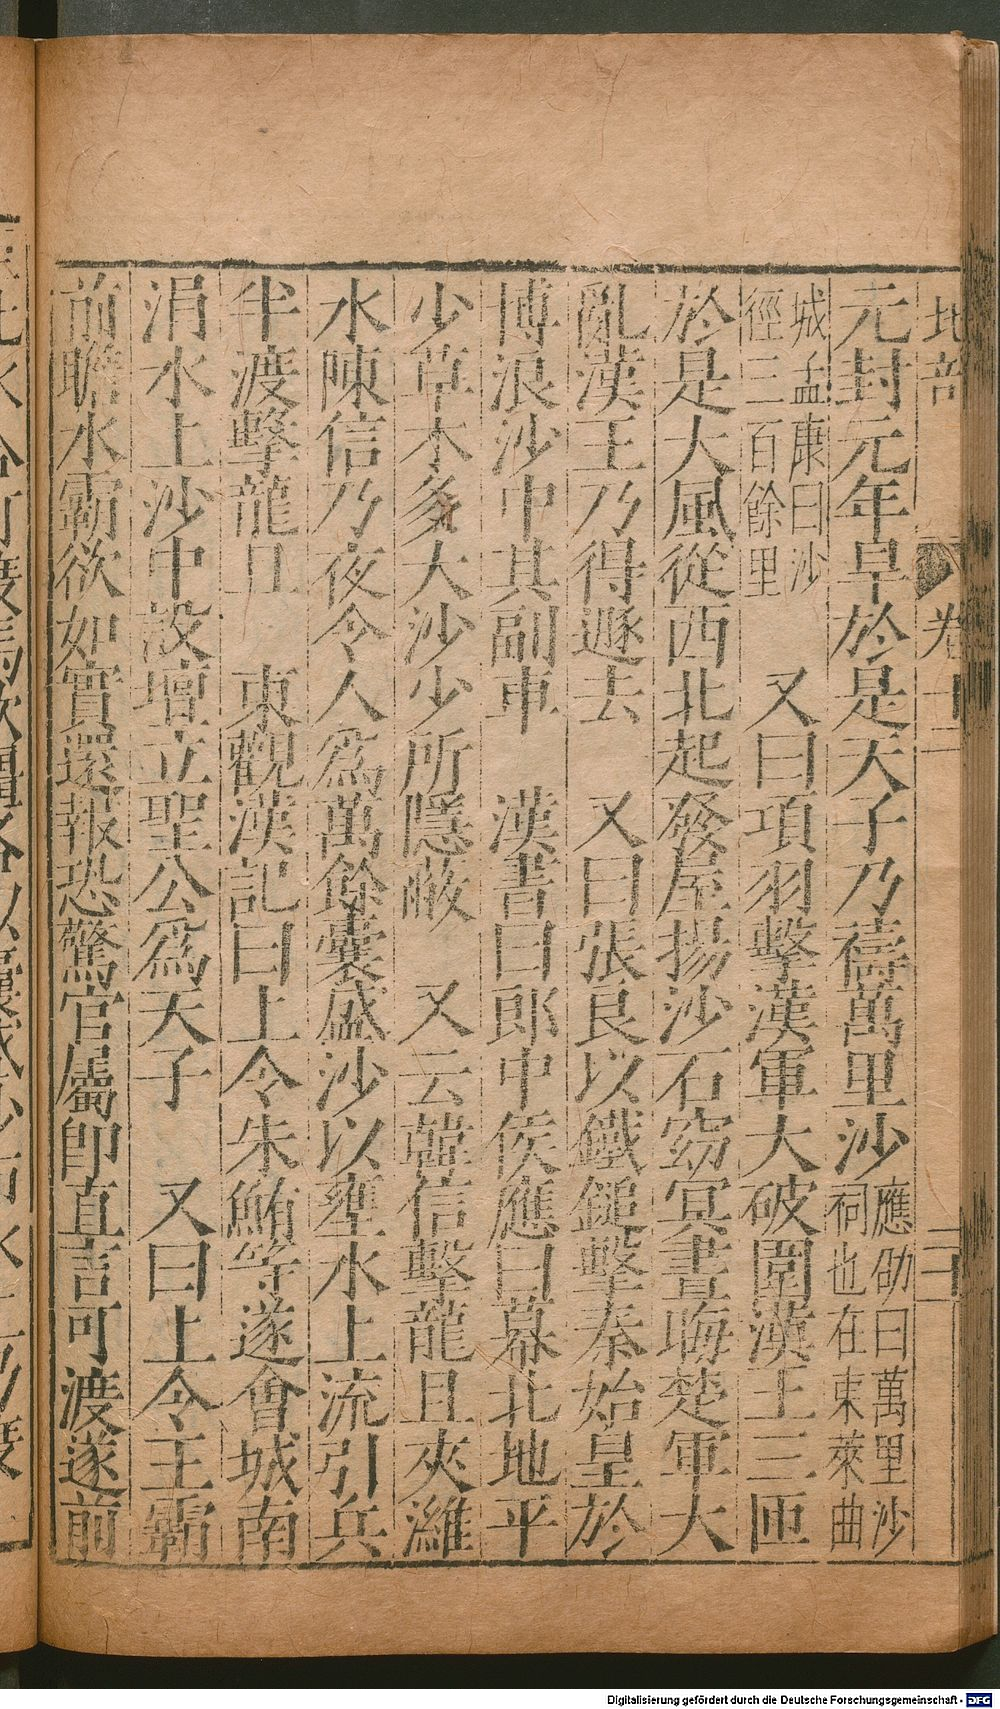 地部 卷十二 二
元封元年旱於是天子乃禱萬里沙應劭曰萬里沙祠也在東萊曲
城孟康曰沙徑三百餘里 又曰項羽擊漢軍大破圍漢王三匝
於是大風從西北起發屋揚沙石窈冥晝晦楚軍大
亂漢王乃得遯去 又曰張良以鐵鎚擊秦始皇於
博浪沙中其副車 漢書曰郎中侯應曰幕北地平
少草木多大沙少所隱蔽 又云韓信擊龍且夾濰
水陳信乃夜令人爲萬餘囊盛沙以壅水上流引兵
半渡擊龍且 東觀漢記曰上令朱鮪等遂會城南
涓水上沙中設壇立聖公爲天子 又曰上令王霸
前瞻水霸欲如實還報恐驚官屬卽直言可渡遂前
Digitalisierung gefördert durch die Deutsche Forschungsgemeinschaft - DFG